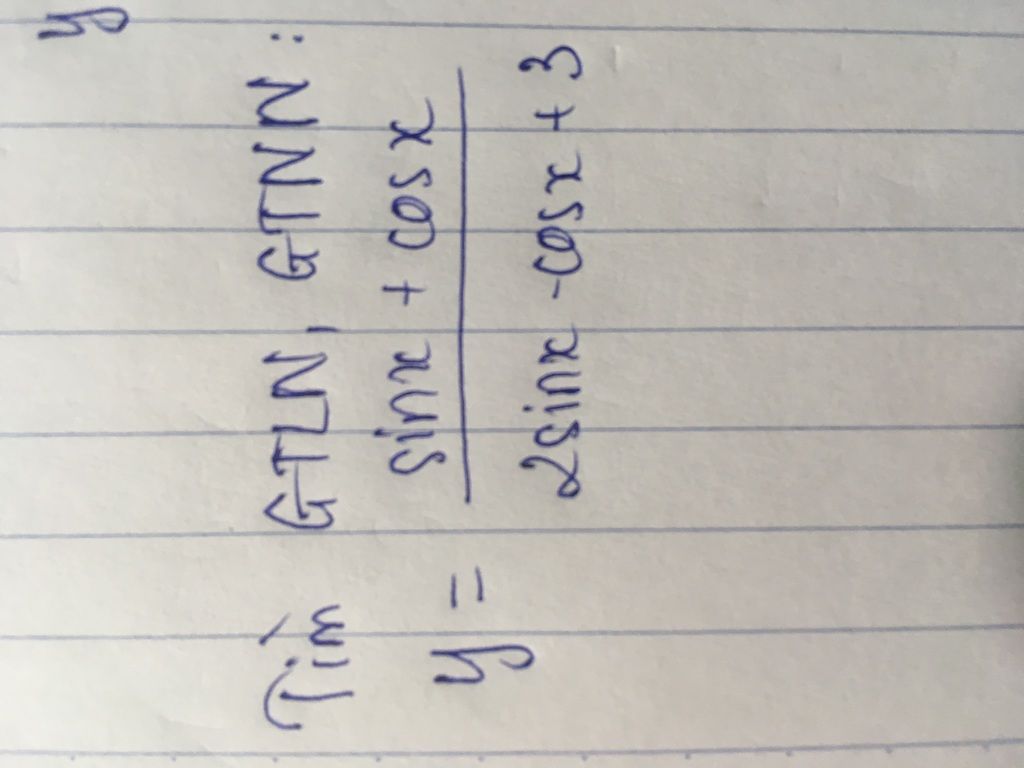 Tìm GTLN, GTNN:
y = sinx + cosx
2sinx - cosx + 3
y